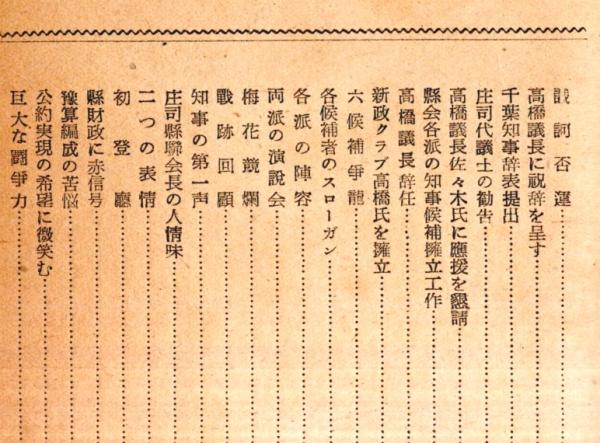 詞否運
高橋議長に祝辞を呈す
千葉知事辞表提出
庄司代議士の勧告
高橋議長佐々木氏に應援を懇請
縣会各派の知事候補擁立工作
高橋議長辞任
新政クラブ高橋氏を擁立
六候補爭龍
各候補者のスローガン
各派の陣容
両派の演説会
梅花競爛
戰跡回顧
知事の第一声
庄司縣聯会長の人情味
二つの表情
初登廳
縣財政に赤信号
豫算編成の苦悩
公約実現の希望に微笑む
巨大な闘爭力